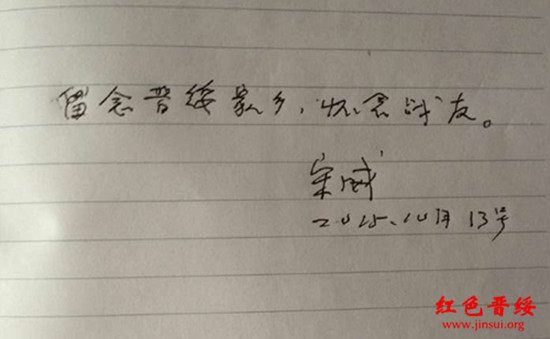 留念晋绥家乡，怀念战友。
宋威
2015.10月13号
红色晋绥
www.jinsui.org